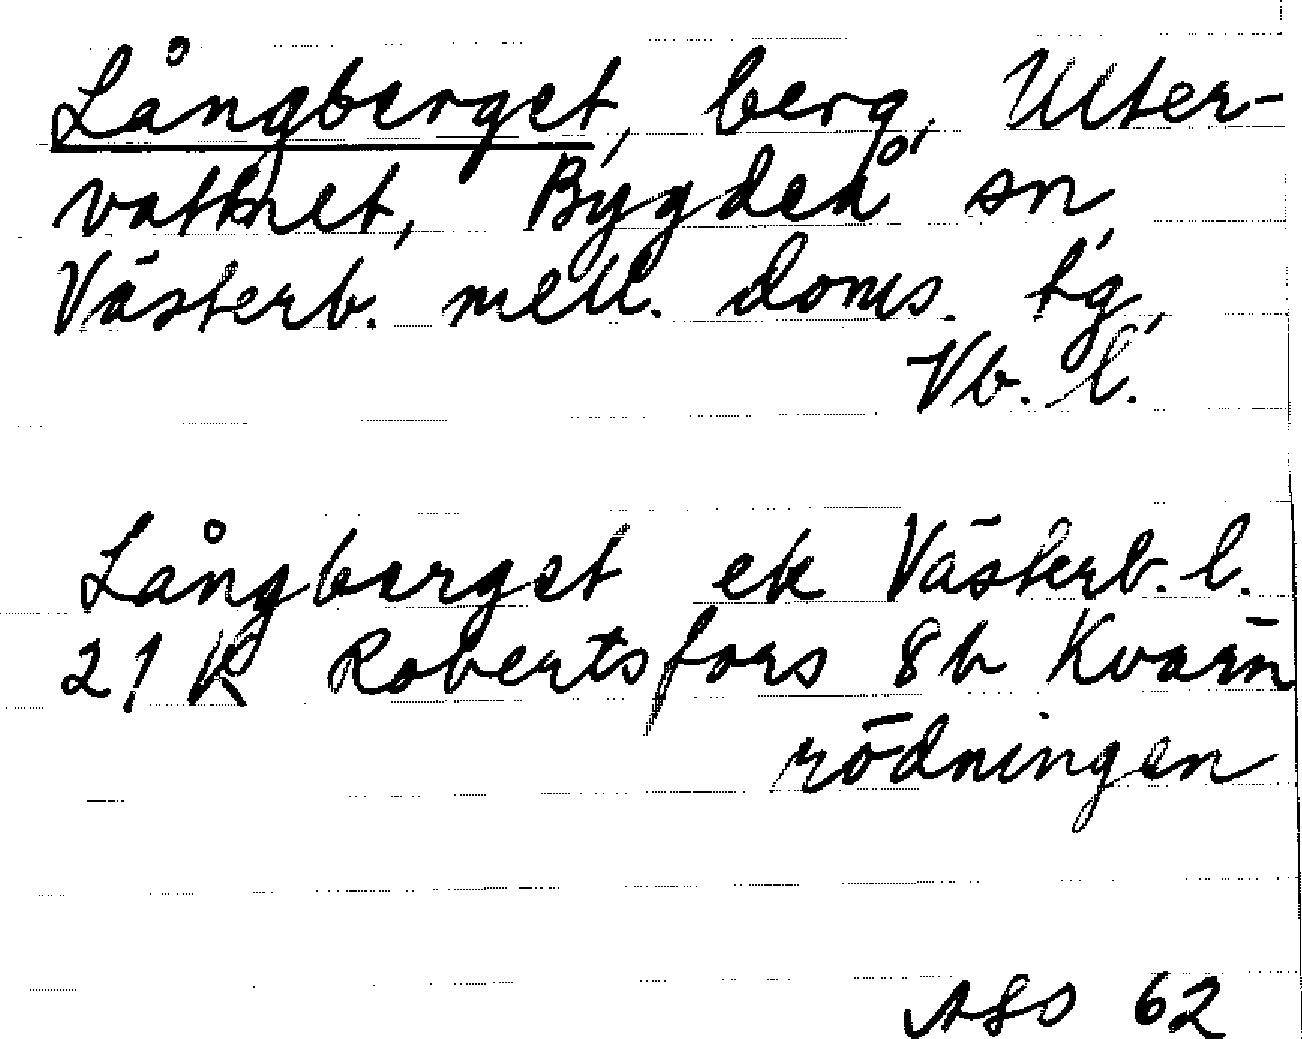 Långberget, berg, Ulter-
vattnet, Bygdeå sn
Västerb. mell. doms. tg,
Vb. l.
Långberget ek Västerb. l.
21 K Robertsfors 8b Kvarn
rödningen
ASO 62